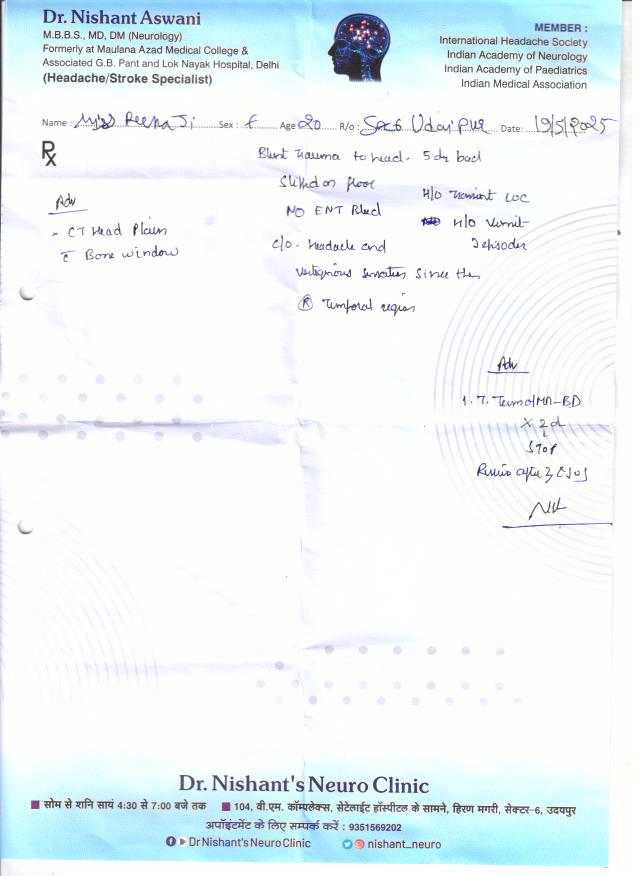 Dr. Nishant Aswani
M.B.B.S., MD, DM (Neurology)
Formerly at Maulana Azad Medical College &
Associated G.B. Pant and Lok Nayak Hospital, Delhi
(Headache/Stroke Specialist)
MEMBER :
International Headache Society
Indian Academy of Neurology
Indian Academy of Paediatrics
Indian Medical Association
Name : Reena Ji Sex : f Age 20 R/o : Sec 6 Udaipur Date: 19/5/2025
Rx
Blunt trauma to head - 5 d back
on floor
H/O Transient LOC
NO ENT Bleed
H/O Vomit
2 episodes
c/o - Headache and
vertiginous since then
(R) Temporal region
Adv
- CT Head Plain
c Bone window
Adv
1. T. BD
x 2d
STOP
Review after
Dr. Nishant's Neuro Clinic
सोम से शनि सायं 4:30 से 7:00 बजे तक 104, वी.एम. कॉम्पलेक्स, सेटेलाईट हॉस्पीटल के सामने, हिरण मगरी, सेक्टर-6, उदयपुर
अपॉइंटमेंट के लिए सम्पर्क करें : 9351569202
Dr Nishant's Neuro Clinic nishant_neuro